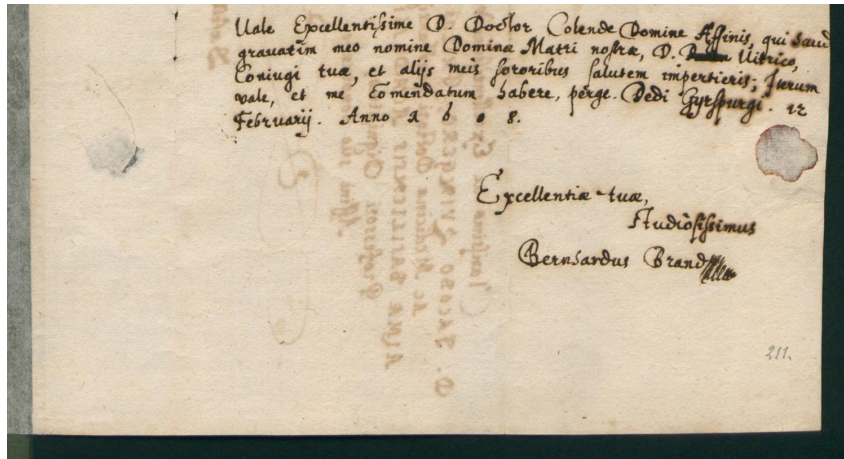 Vale Excellentissime D. Doctor Colende Domine Affinis, qui haud
gravatim meo nomine Dominæ Matri nostræ, D. Vitrico,
Coniugi tuæ, et alijs meis sororibus salutem impertieris; Iterum
vale, et me comendatum habere, perge. Dedi Gyrspurgi. 12
Februarij. Anno 1608.
Excellentiæ tuæ,
Studiosissimus
Bernhardus Brand
211.